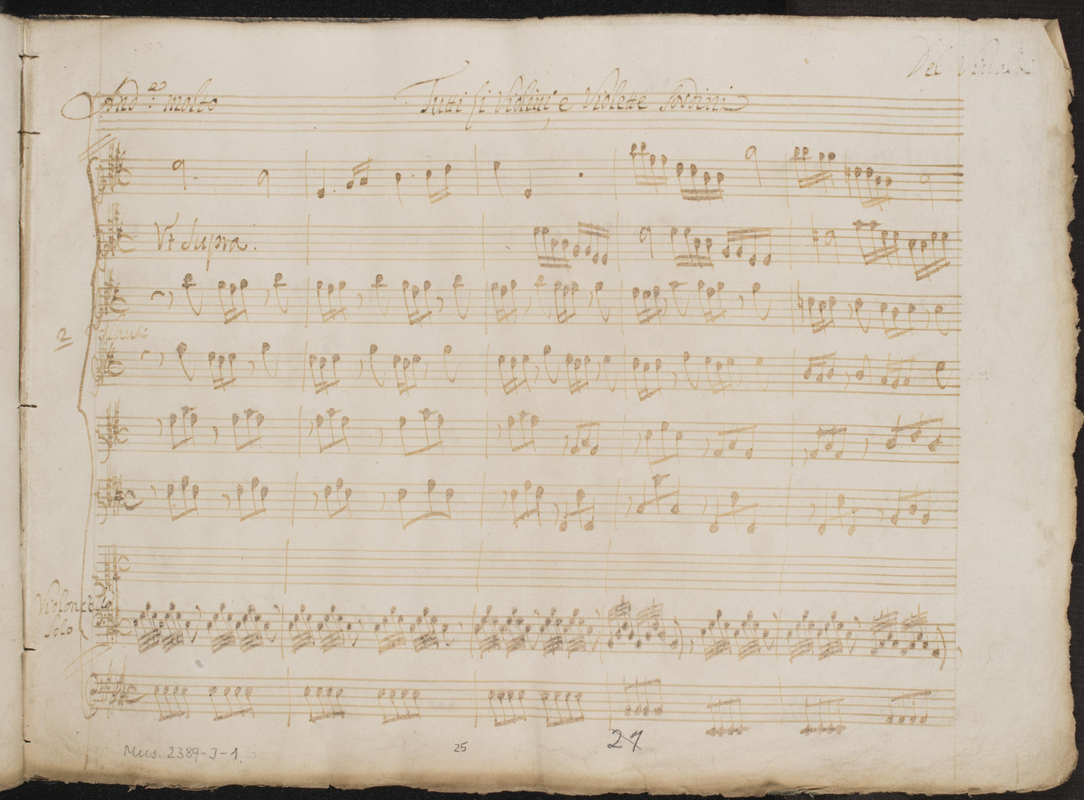 Del Vivaldi
And.te molto
Tutti li Violini, e Violette Sordini
Vt Supra.
2
Violoncello
Solo
Mus. 2389-J-1,
25
27